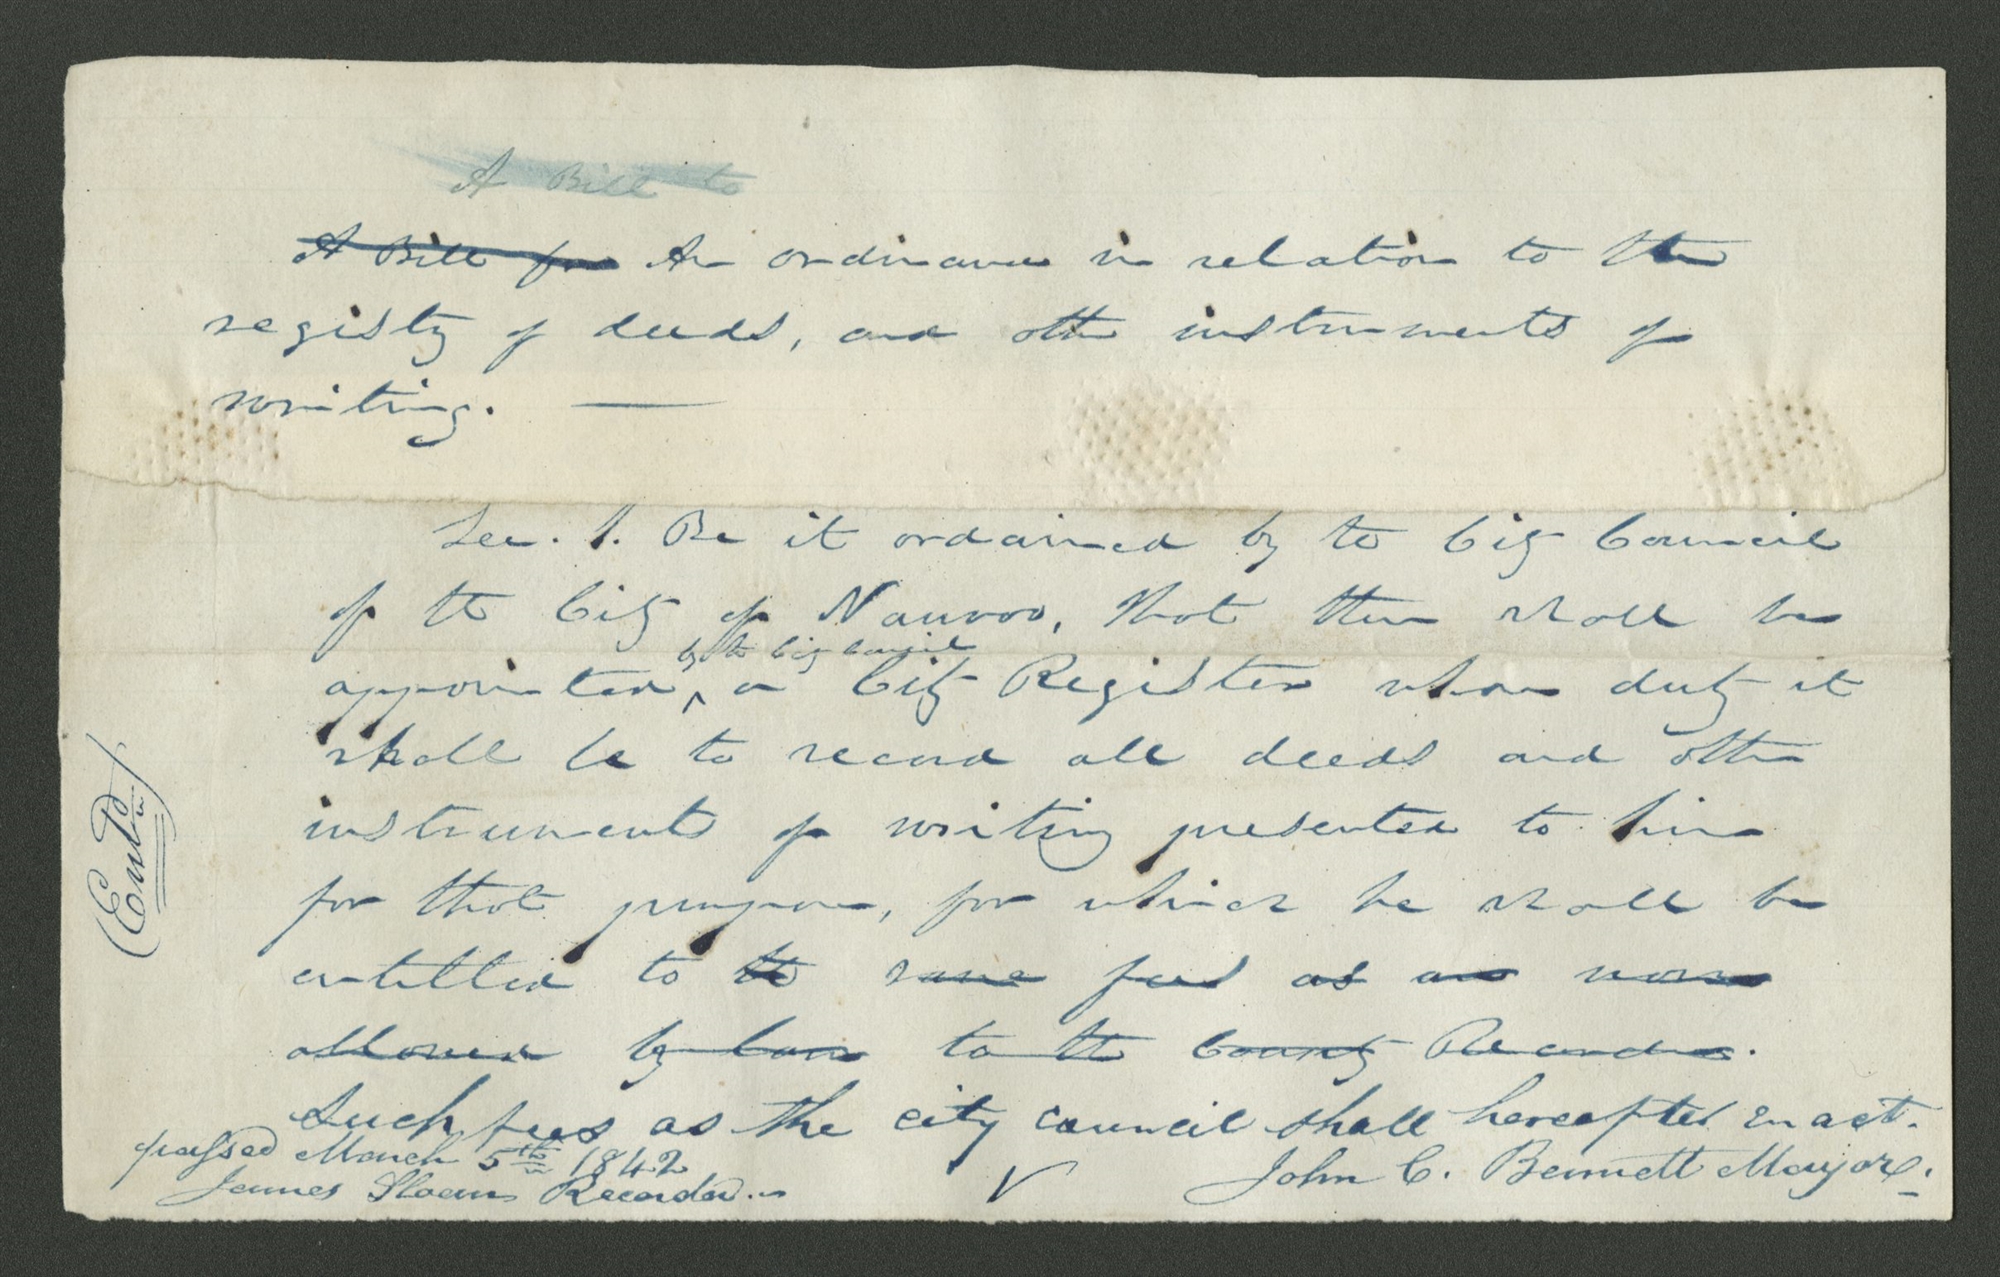 A Bill to
A Bill for An ordinance in relation to the
registry of deeds, and other instruments of
writing. —
Sec. 1. Be it ordained by the City Council
of the City of Nauvoo, that there shall be
by the City Council
appointed ^ a City Register whose duty it
shall be to record all deeds and other
instruments of writing presented to him
for that purpose, for which he shall be
entitled to the same fees as are now
allowed by law to the County Recorder.
Such fees as the city council shall hereafter enact.
passed March 5th 1842
James Sloan Recorder.
John C. Bennett Mayor.
(Entd)